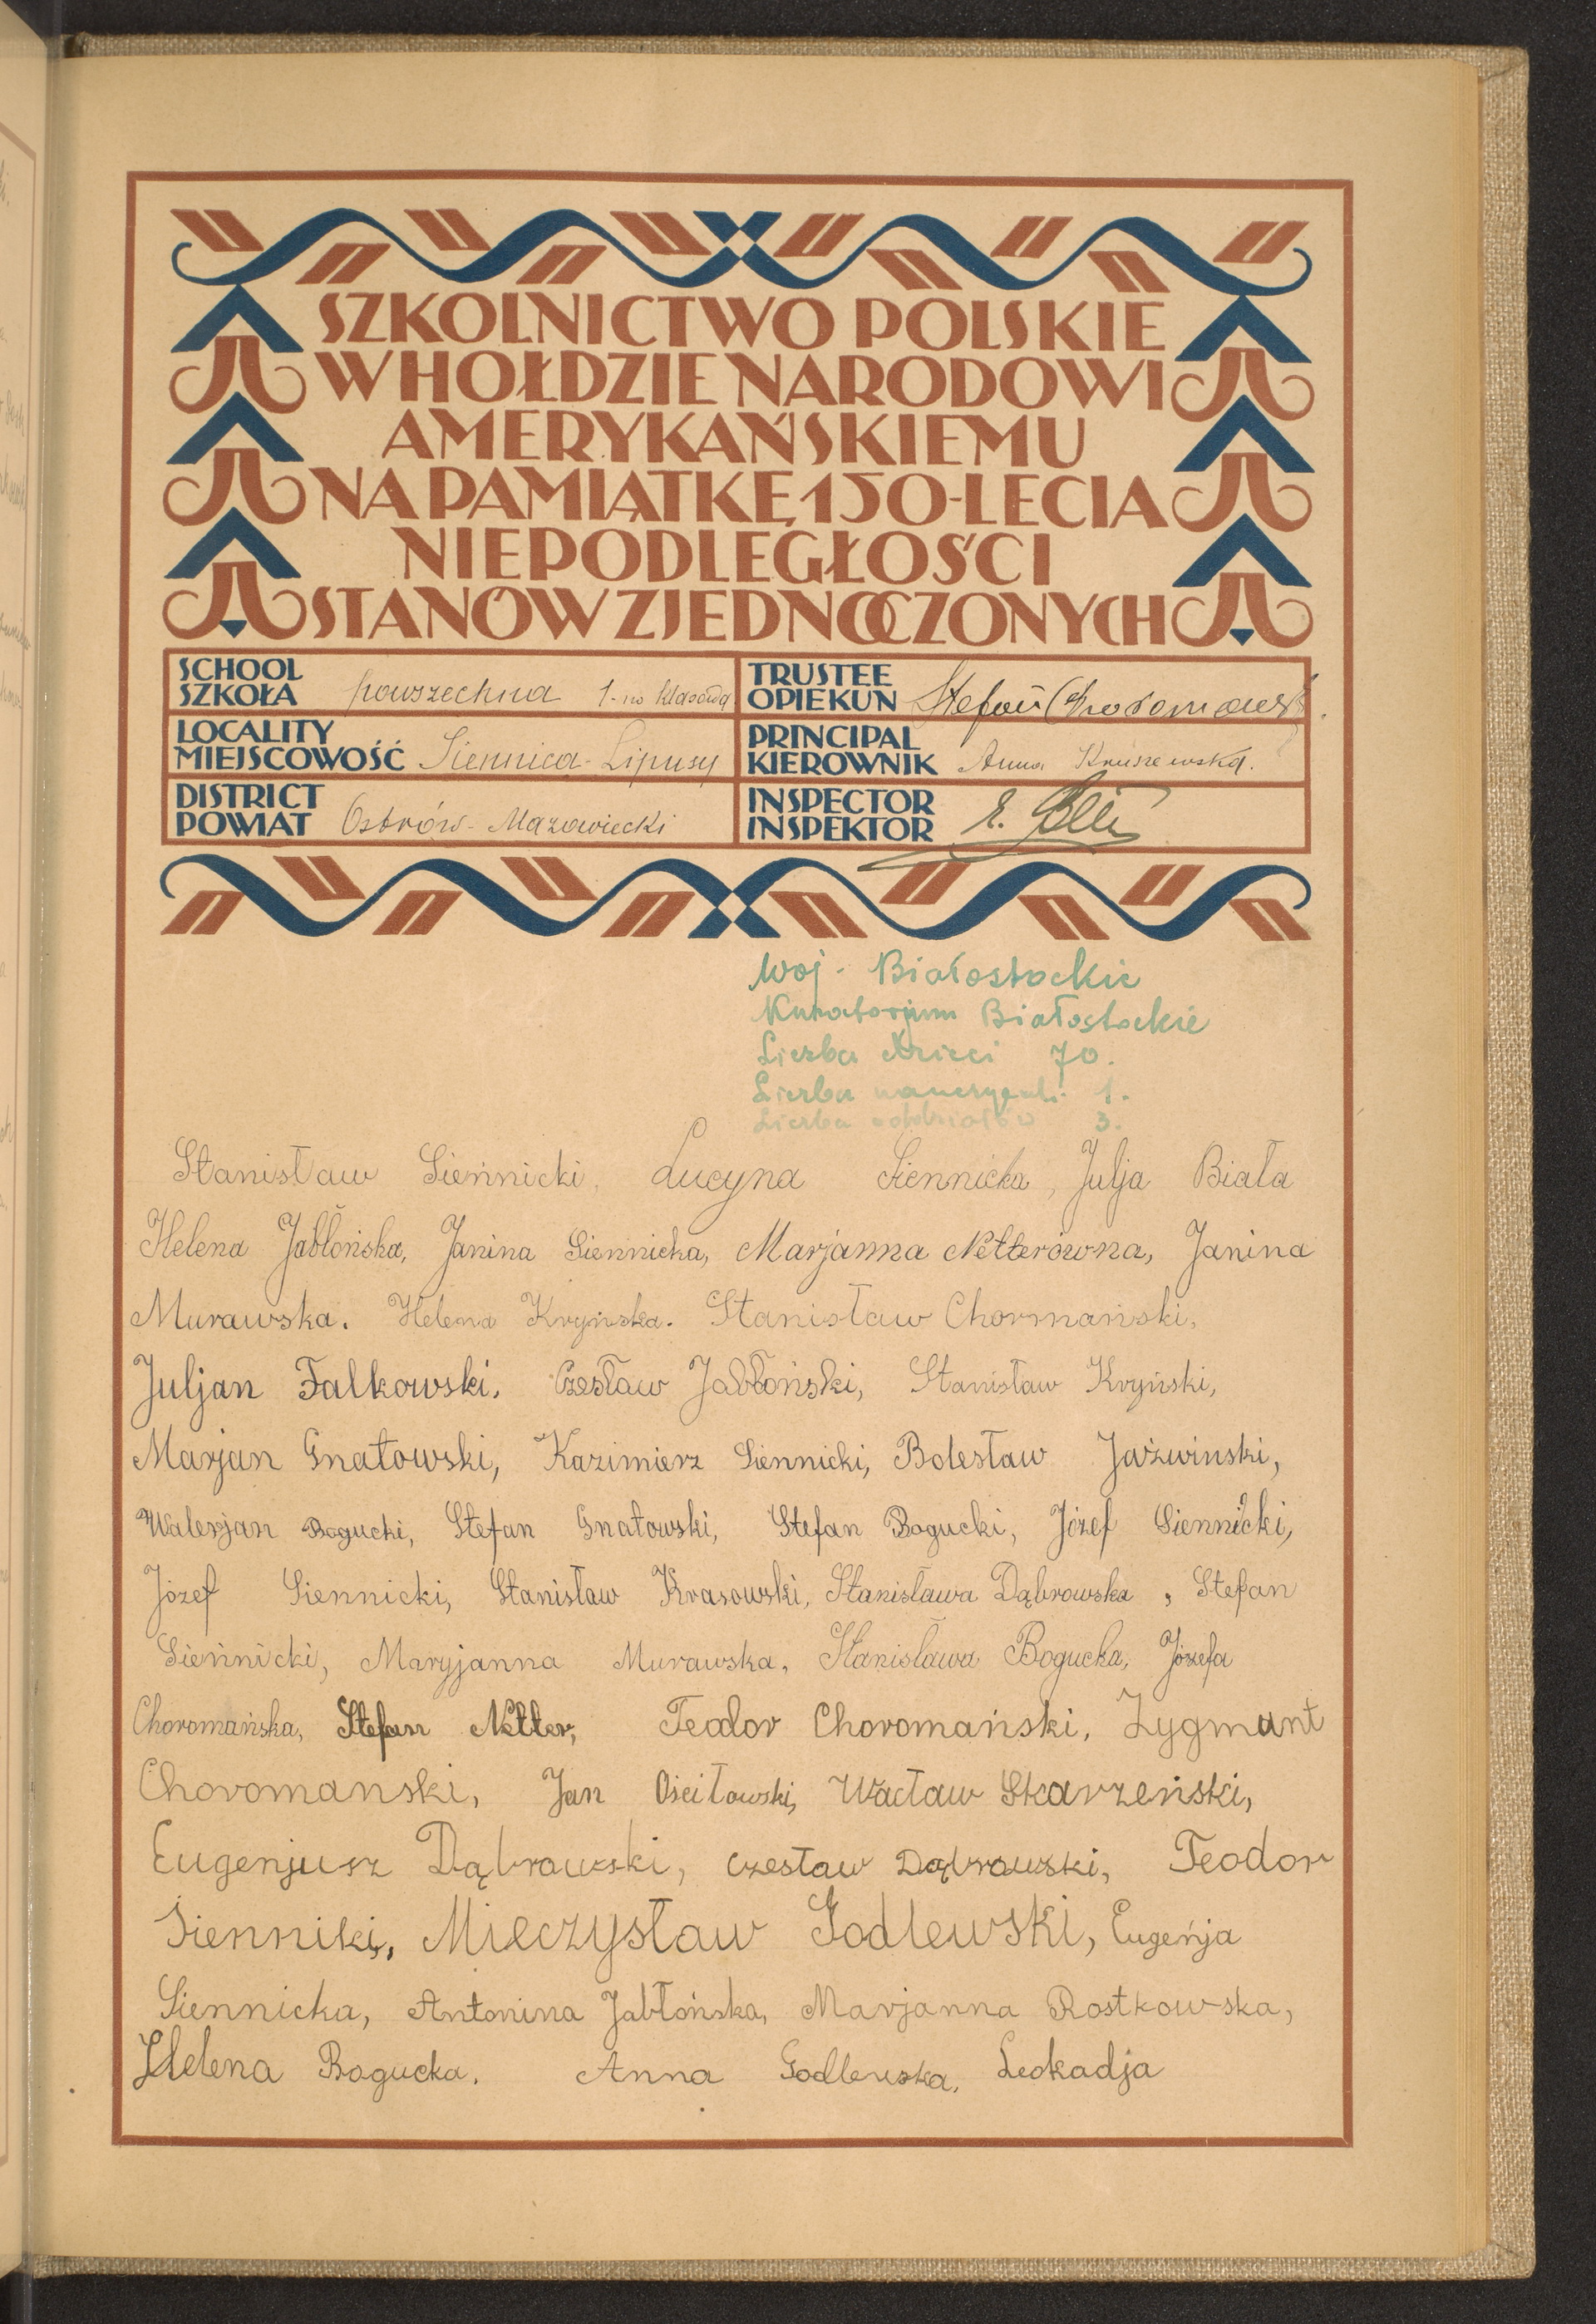 SZKOLNICTWO POLSKIE
W HOŁDZIE NARODOWI
AMERYKAŃSKIEMU
NA PAMIĄTKĘ 150-LECIA
NIEPODLEGŁOŚCI
STANÓW ZJEDNOCZONYCH
SCHOOL
SZKOŁA powszechna 1-no klasowa
TRUSTEE
OPIEKUN Stefan Choromański
LOCALITY
MIEJSCOWOŚĆ Siennica-Lipusy
PRINCIPAL
KIEROWNIK Anna Kruszewska.
DISTRICT
POWIAT Ostrów-Mazowiecki
INSPECTOR
INSPEKTOR
Woj- Białostockie
Kuratorjum Białostockie
Liczba dzieci 70.
Liczba nauczycieli 1.
Liczba oddziałów 3.
Stanisław Sieńnicki, Lucyna Siennicka, Julja Biała
Helena Jabłońska, Janina Siennicka, Marjanna Netterówna, Janina
Murawska. Helena Kryńska. Stanisław Chormański,
Juljan Falkowski. Czesław Jabłoński, Stanisław Kryński,
Marjan Gnatowski, Kazimierz Siennicki, Bolesław Jaźwinski,
Walerjan Bogucki, Stefan Gnatowski, Stefan Bogucki, Józef Siennicki,
Józef Siennicki, Stanisław Krasowski, Stanisława Dąbrowska, Stefan
Sieńnicki, Maryjanna Murawska, Stanisława Bogucka, Józefa
Choromańska, Stefan Netter, Teodor Choromański, Zygmunt
Choromanski, Jan Ościłowski, Wacław Skarzeński,
Eugenjusz Dąbrowski, Czesław Dąbrowski, Teodor
Sienniki, Mieczysław Godlewski, Eugeńja
Siennicka, Antonina Jabłońska, Marjanna Rostkowska,
Helena Bogucka. Anna Godlewska, Leokadja